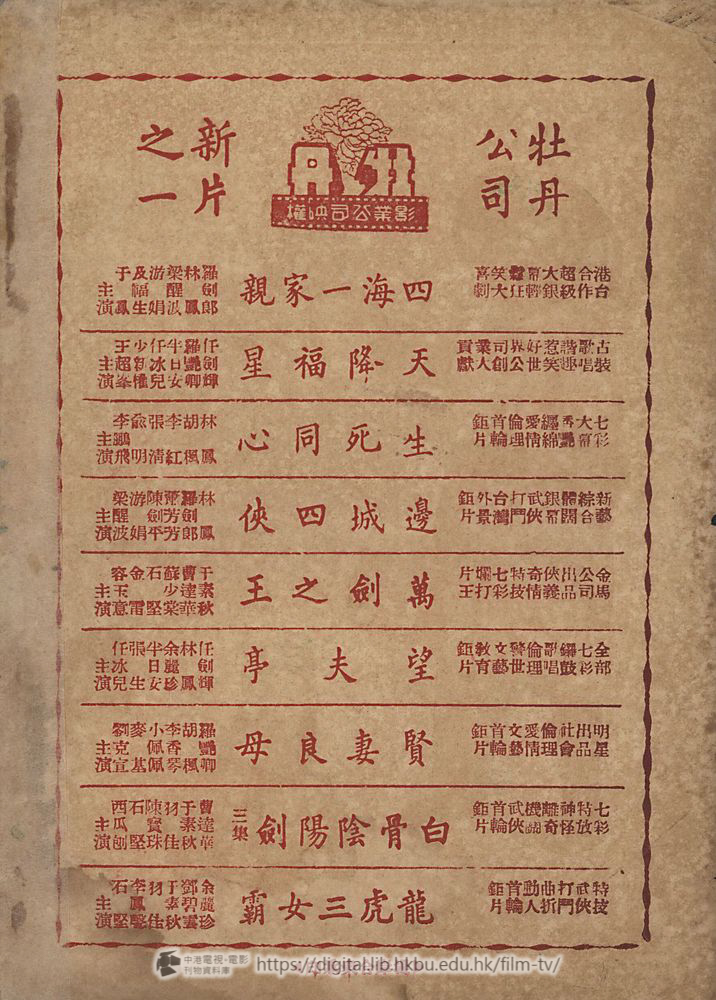 牡丹公司
牡丹
影業公司映權
新片之一
港台合作超級大銀幕輕鬆狂笑大喜劇
四海一家親
羅劍郎 林鳳 梁醒波 游娟 及幅生 于鳳 主演
古裝歌唱諧趣惹笑好世界公司創業人貢獻
天降福星
任劍輝 羅艷卿 半日安 任冰兒 少新權 王超峯 主演
七彩大幕香艷纏綿愛情倫理首輪鉅片
生死同心
林鳳 胡楓 李紅 張清 俞明 李鵬飛 主演
新藝綜合體闊銀幕武俠打鬥台灣外景鉅片
邊城四俠
林鳳 羅劍郎 蕭芳芳 陳劍平 游娟 梁醒波 主演
金馬公司出品俠義奇情特技七彩爛打片王
萬劍之王
于素秋 曹達華 蘇少棠 石堅 金雷 容玉意 主演
全部七彩鑼鼓歌唱倫理警世文藝教育鉅片
望夫亭
任劍輝 林鳳 余麗珍 半日安 張生 任冰兒 主演
明星出品社會倫理愛情文藝首輪鉅片
賢妻良母
羅艷卿 胡楓 李香琴 小佩佩 麥基 劉克宣 主演
七彩特放神怪離奇機關武俠首輪鉅片
白骨陰陽劍 三集
曹達華 于素秋 羽佳 陳寶珠 石堅 西瓜刨 主演
特技武俠打鬥曲折動人首輪鉅片
龍虎三女霸
余麗珍 鄧碧雲 于素秋 羽佳 李鳳聲 石堅 主演
中港電視·電影
刊物資料庫
https://digital.lib.hkbu.edu.hk/film-tv/